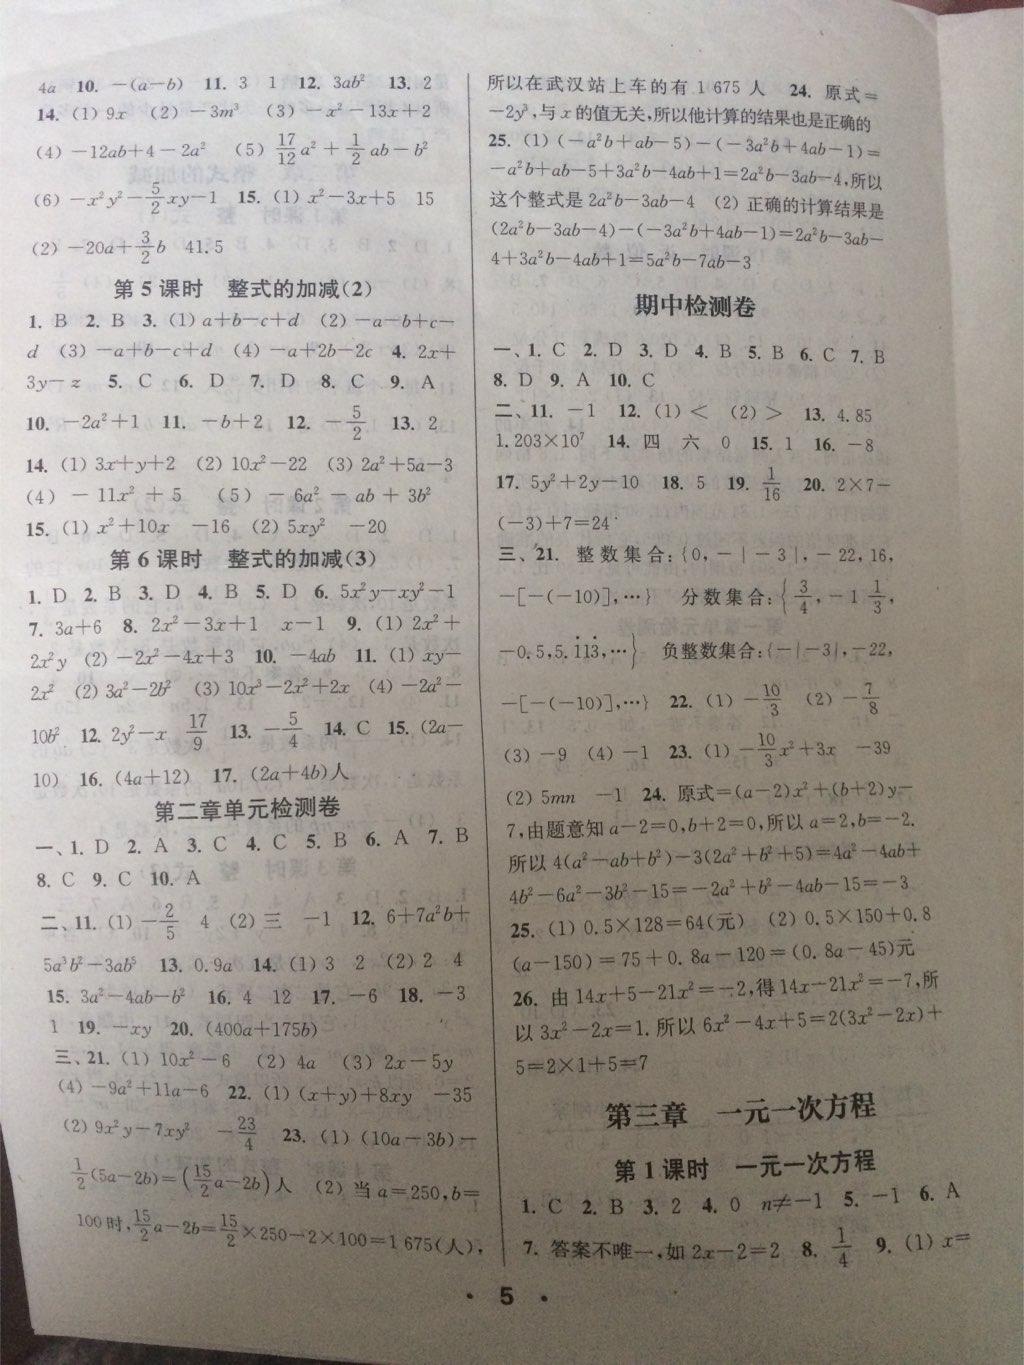 4a 10. −(a−b) 11. 3 1 12. 3ab² 13. 2
14. (1) 9x (2) −3m³ (3) −x²−13x+2
(4) −12ab+4−2a² (5) 17/12a²+1/2ab−b²
(6) −x²y²−5/2xy−1 15. (1) x²−3x+5 15
(2) −20a+3/2b 41.5
第5课时 整式的加减(2)
1. B 2. B 3. (1) a+b−c+d (2) −a−b+c−
d (3) −a+b−c+d (4) −a+2b−2c 4. 2x+
3y−z 5. C 6. D 7. D 8. C 9. A
10. −2a²+1 11. −b+2 12. −5/2 13. 2
14. (1) 3x+y+2 (2) 10x²−22 (3) 2a²+5a−3
(4) −11x²+5 (5) −6a²−ab+3b²
15. (1) x²+10x −16 (2) 5xy² −20
第6课时 整式的加减(3)
1. D 2. B 3. D 4. B 5. D 6. 5x²y−xy²−1
7. 3a+6 8. 2x²−3x+1 x−1 9. (1) 2x²+
2x²y (2) −2x²−4x+3 10. −4ab 11. (1) xy−
2x² (2) 3a²−2b² (3) 10x³−2x²+2x (4) −2a²−
10b² 12. 2y²−x 17/9 13. −5/4 14. C 15. (2a−
10) 16. (4a+12) 17. (2a+4b)人
第二章单元检测卷
一、1. D 2. A 3. C 4. C 5. B 6. A 7. B
8. C 9. C 10. A
二、11. (1) −2/5 4 (2) 三 −1 12. 6+7a²b+
5a³b²−3ab⁵ 13. 0.9a 14. (1) 3 2 (2) 2 4
15. 3a²−4ab−b² 16. 4 12 17. −6 18. −3
1 19. −xy 20. (400a+175b)
三、21. (1) 10x²−6 (2) 4a (3) 2x−5y
(4) −9a²+11a−6 22. (1) (x+y)+8xy −35
(2) 9x²y−7xy² −23/4 23. (1) (10a−3b)−
1/2(5a−2b)=(15/2a−2b)人 (2) 当a=250,b=
100时,15/2a−2b=15/2×250−2×100=1 675(人),
所以在武汉站上车的有1 675人 24. 原式=
−2y³,与x的值无关,所以他计算的结果也是正确的
25. (1) (−a²b+ab−5)−(−3a²b+4ab−1)=
−a²b+ab−5+3a²b−4ab+1=2a²b−3ab−4,所以
这个整式是2a²b−3ab−4 (2) 正确的计算结果是
(2a²b−3ab−4)−(−3a²b+4ab−1)=2a²b−3ab−
4+3a²b−4ab+1=5a²b−7ab−3
期中检测卷
一、1. C 2. D 3. D 4. B 5. B 6. C 7. B
8. D 9. A 10. C
二、11. −1 12. (1) < (2) > 13. 4.85
1.203×10⁷ 14. 四 六 0 15. 1 16. −8
17. 5y²+2y−10 18. 5 19. 1/16 20. 2×7−
(−3)+7=24
三、21. 整数集合:{0,−|−3|,−22,16,
−[−(−10)],…} 分数集合:{3/4,−1 1/3,
−0.5,5.1̇13̇,…} 负整数集合:{−|−3|,−22,
−[−(−10)],…} 22. (1) −10/3 (2) −7/8
(3) −9 (4) −1 23. (1) −10/3x²+3x −39
(2) 5mn −1 24. 原式=(a−2)x²+(b+2)y−
7,由题意知a−2=0,b+2=0,所以a=2,b=−2.
所以4(a²−ab+b²)−3(2a²+b²+5)=4a²−4ab+
4b²−6a²−3b²−15=−2a²+b²−4ab−15=−3
25. (1) 0.5×128=64(元) (2) 0.5×150+0.8
(a−150)=75+0.8a−120=(0.8a−45)元
26. 由14x+5−21x²=−2,得14x−21x²=−7,所
以3x²−2x=1.所以6x²−4x+5=2(3x²−2x)+
5=2×1+5=7
第三章 一元一次方程
第1课时 一元一次方程
1. C 2. B 3. 2 4. 0 n≠−1 5. −1 6. A
7. 答案不唯一,如2x−2=2 8. 1/4 9. (1) x=
• 5 •